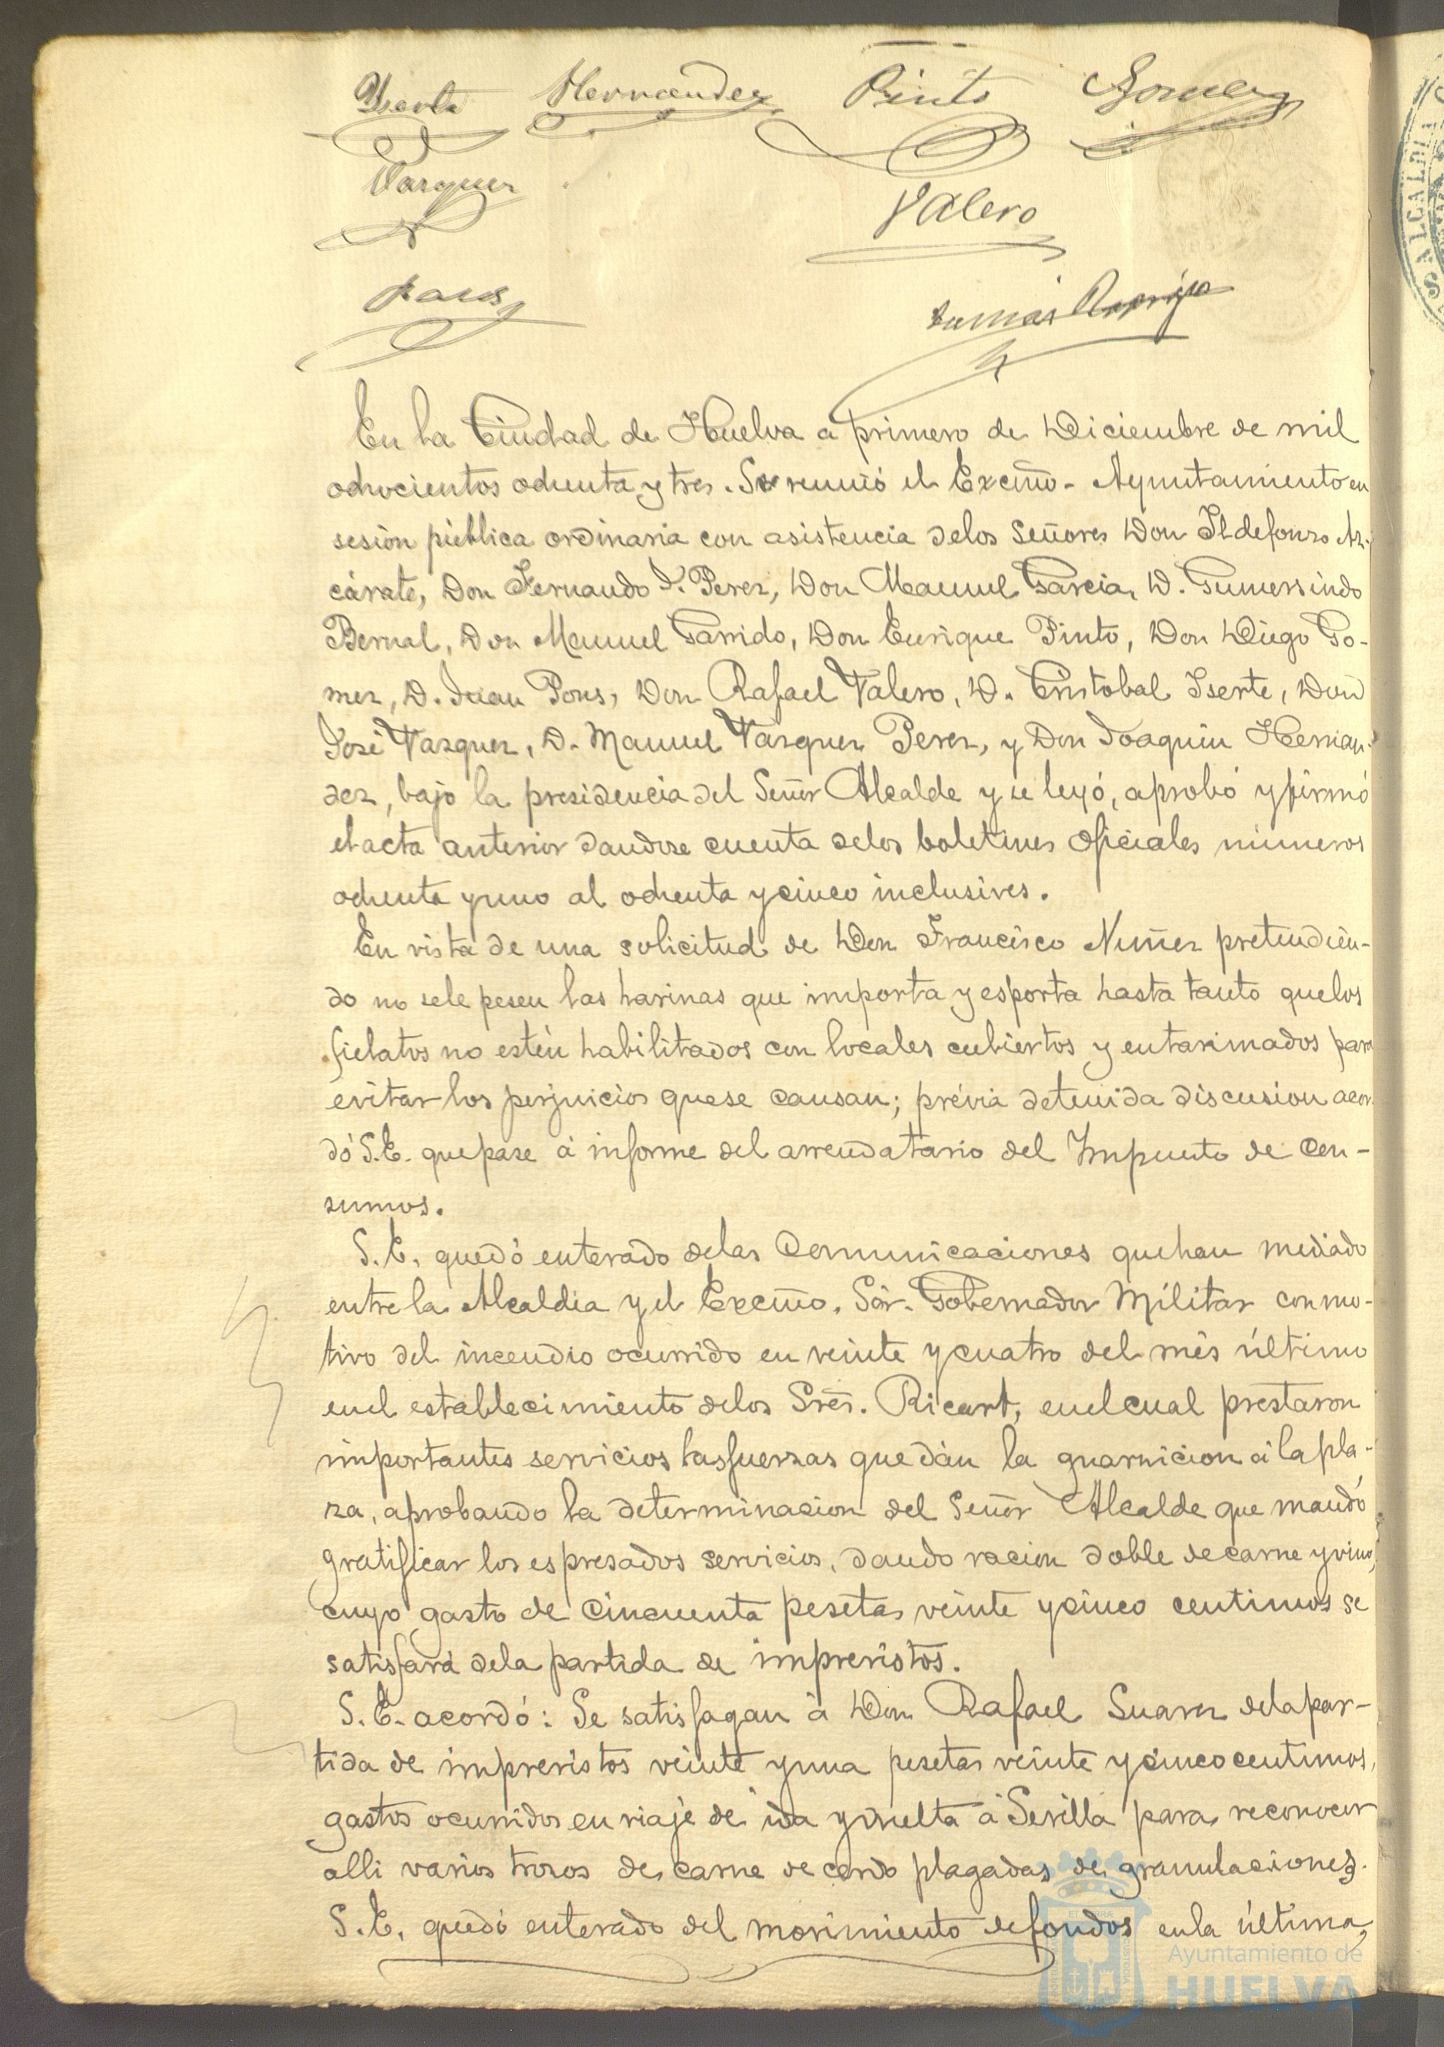 Yserte Hernandez Pinto Gomez
Vazquez
Valero
Pons
En la Ciudad de Huelva a primero de Diciembre de mil
ochocientos ochenta y tres. Se reunió el Excmo. Ayuntamiento en
sesión pública ordinaria con asistencia de los Señores Don Ildefonso Az-
cárate, Don Fernando V. Perez, Don Manuel Garcia, D. Gumersindo
Bernal, Don Manuel Garrido, Don Enrique Pinto, Don Diego Go-
mez, D. Juan Pons, Don Rafael Valero, D. Cristobal Iserte, Don
José Vazquez, D. Manuel Vazquez Perez, y Don Joaquin Hernan-
dez, bajo la presidencia del Señor Alcalde y se leyó, aprobó y firmó
el acta anterior dandose cuenta de los boletines Oficiales números
ochenta y uno al ochenta y cinco inclusives.
En vista de una solicitud de Don Francisco Nuñez pretendien-
do no se le pesen las harinas que importa y esporta hasta tanto que los
fielatos no estén habilitados con locales cubiertos y entarimados para
evitar los perjuicios que se causan; prévia detenida discusion acor-
dó S.E. que pase á informe del arrendatario del Impuesto de Con-
sumos.
S.E. quedó enterado de las Comunicaciones que han mediado
entre la Alcaldia y el Excmo. Sôr. Gobernador Militar con mo-
tivo del incendio ocurrido en veinte y cuatro del més último
en el establecimiento de los Sres. Ricart, en el cual prestaron
importantes servicios las fuerzas que dán la guarnicion á la pla-
za, aprobando la determinacion del Señor Alcalde que mandó
gratificar los espresados servicios, dando racion doble de carne y vino,
cuyo gasto de Cincuenta pesetas veinte y cinco centimos se
satisfará de la partida de imprevistos.
S.E. acordó: Se satisfagan á Don Rafael Suarez de la par-
tida de imprevistos veinte y una pesetas veinte y cinco centimos,
gastos ocurridos en viaje de ida y vuelta á Sevilla para reconocer
alli varios trozos de carne de cerdo plagadas de granulaciones.
S.E. quedó enterado del movimiento de fondos en la última
Ayuntamiento de
HUELVA